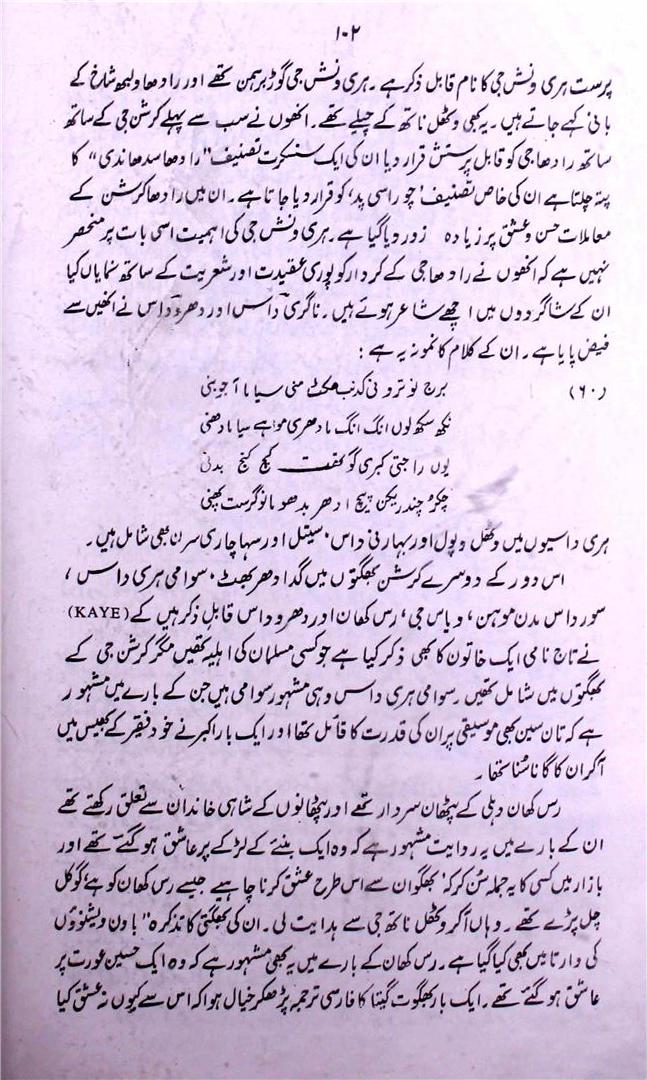 ۱۰۲
پرست ہری ونش جی کا نام قابل ذکر ہے۔ ہری ونش جی گوڑ برہمن تھے اور رادھا ولبھ شاخ کے
بانی کہے جاتے ہیں۔ یہ بھی وٹھل ناتھ کے چیلے تھے۔ انھوں نے سب سے پہلے کرشن جی کے ساتھ
ساتھ رادھا جی کو قابل پرستش قرار دیا ان کی ایک سنسکرت تصنیف "رادھا سدھاندی" کا
پتہ چلتا ہے ان کی خاص تصنیف 'چوراسی پد' کو قرار دیا جاتا ہے۔ ان میں رادھا کرشن کے
معاملات حسن و عشق پر زیادہ زور دیا گیا ہے۔ ہری ونش جی کی اہمیت اسی بات پر منحصر
نہیں ہے کہ انھوں نے رادھا جی کے کردار کو پوری عقیدت اور شعریت کے ساتھ نمایاں کیا
ان کے شاگردوں میں اچھے شاعر ہوئے ہیں۔ ناگری داس اور دھرو داس نے انھیں سے
فیض پایا ہے۔ ان کے کلام کا نمونہ یہ ہے :
(۶۰) برج نو ترونی کدنب مکٹ منی سیاما آجوبنی
نکھ سکھ لوں انگ انگ مادھری موہے سیامادھنی
یوں راجتی کبری گو کچ کنج بدنی
چندریکن بیچ ادھر بدھو مانو گرست پھنی
ہری داسیوں میں وٹھل وپول اور بہارنی داس، سیتل اور سہاچاری سرن بھی شامل ہیں۔
اس دور کے دوسرے کرشن بھگتوں میں گدا دھر بھٹ، سوامی ہری داس،
سورداس مدن موہن، ویاس جی، رس کھان اور دھرو داس قابل ذکر ہیں کے (KAYE)
نے تاج نامی ایک خاتون کا بھی ذکر کیا ہے جو کسی مسلمان کی اہلیہ تھیں مگر کرشن جی کے
بھگتوں میں شامل تھیں۔ سوامی ہری داس وہی مشہور سوامی ہیں جن کے بارے میں مشہور
ہے کہ تان سین بھی موسیقی پر ان کی قدرت کا قائل تھا اور ایک بار اکبر نے خود فقیر کے بھیس میں
آکر ان کا گانا سنا تھا۔
رس کھان دہلی کے پٹھان سردار تھے اور پٹھانوں کے شاہی خاندان سے تعلق رکھتے تھے
ان کے بارے میں یہ روایت مشہور ہے کہ وہ ایک بنئے کے لڑکے پر عاشق ہو گئے تھے اور
بازار میں کسی کا یہ جملہ سن کر کہ 'بھگوان سے اس طرح عشق کرنا چاہیے جیسے رس کھان کو ہے' گوکل
چل پڑے تھے۔ وہاں آکر وٹھل ناتھ جی سے ہدایت لی۔ ان کی بھگتی کا تذکرہ "باون ویشنوؤں
کی وارتا میں بھی کیا گیا ہے۔ رس کھان کے بارے میں یہ بھی مشہور ہے کہ وہ ایک حسین عورت پر
عاشق ہو گئے تھے۔ ایک بار بھگوت گیتا کا فارسی ترجمہ پڑھ کر خیال ہوا کہ اس سے کیوں نہ عشق کیا